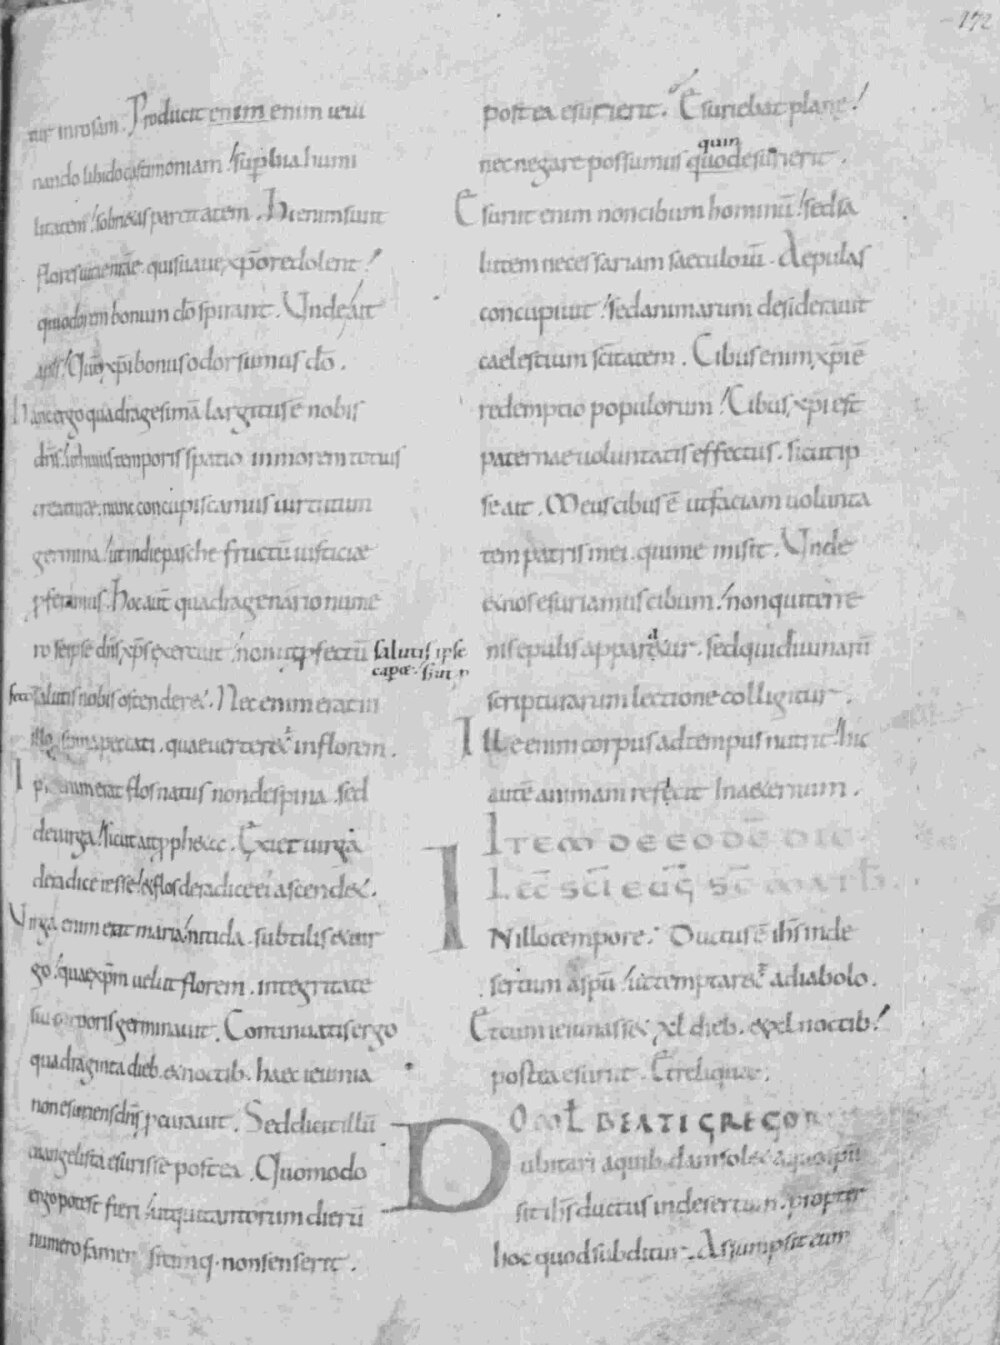 172
tur in rosam. Producit enim enim ieiu
nando libido castimoniam. superbia humi
litatem. sobrietas parcitatem. Hi enim sunt
flores vite nrae. qui suave xpo redolent.
quiodorem bonum do spirant. Unde ait
apls. Qm xpi bonus odor sumus do.
Hanc ergo quadragesimā largitus ē nobis
dns. ut huius temporis spatio in morem totius
creaturae. nunc concupiscamus virtutum
germina. ut in die pasche fructū iusticiae
pferamus. Hoc aut quadragenario nume
ro se ipse dns xps exercuit. non ut pfectū salutis ipse
caperet. sed ut p
fectū salutis nobis ostenderet. Nec enim erat in
illo spina peccati. quae verteretur in florem.
Ipse enim erat flos natus non de spina. sed
de virga. sicut ait ppheta. Exiet virga
de radice iesse. et flos de radice ei ascendet.
Virga enim erat maria. nitida. subtilis et vir
go. quae xpm velut florem. integritate
sui corporis germinavit. Continuatis ergo
quadraginta dieb. et noctib. haec ieiunia
non esuriens dns pcuravit. Sed dicit illū
evangelista esurisse postea. Quomodo
ergo potest fieri. ut qui tantorum dierū
numero famem sitimq. non senserit.
postea esurierit. Esuriebat plane.
quin
nec negare possumus quod esurierit.
Esurit enim non cibum hominū. sed sa
lutem necessariam saeculoiū. Aepulas
concupiuit. sed animarum desideravit
caelestium scitatem. Cibus enim xpi ē
redemptio populorum. Cibus xpi est
paternae voluntatis effectus. sicut ip
se ait. Meus cibus ē ut faciam volunta
tem patris mei. qui me misit. Unde
et nos esuriamus cibum. non qui terre
nis epulis apparatur. sed qui divinarū
scripturarum lectione colligitur.
Ille enim corpus ad tempus nutrit. hic
autē animam reficit in aeternum.
ITEM DE EODĒ DIE
LEC SCI EUG SC MATH
IN illo tempore. Ductus ē ihs in de
sertum a spu. ut temptaretur a diabolo.
Et cum ieiunasset xl dieb. et xl noctib.
postea esuriit. Et reliquae.
OMEL BEATI GREGOR
Dubitari a quib. dam solet a quo spu
sit ihs ductus in desertum. propter
hoc quod subditur. Assumpsit eum